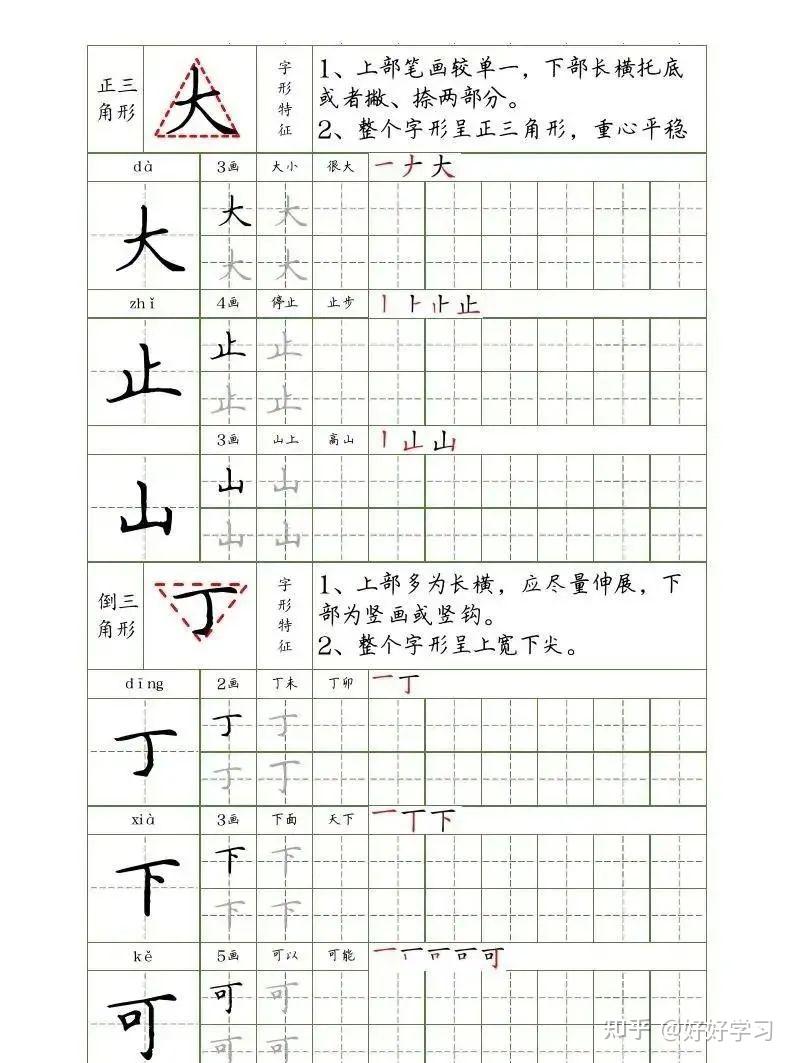 正三
角形
大
字
形
特
征
1、上部笔画较单一，下部长横托底
或者撇、捺两部分。
2、整个字形呈正三角形，重心平稳
dà 3画 大小 很大 一ナ大
大 大 大
大 大
zhǐ 4画 停止 止步 丨⺊止
止 止 止
止 止
3画 山上 高山 丨山
山 山 山
山 山
倒三
角形
丁
字
形
特
征
1、上部多为长横，应尽量伸展，下
部为竖画或竖钩。
2、整个字形呈上宽下尖。
dīng 2画 丁未 丁卯 一丁
丁 丁 丁
丁 丁
xià 3画 下面 天下 一丅下
下 下 下
下 下
kě 5画 可以 可能 一可
可 可 可
可 可
知乎 @好好学习